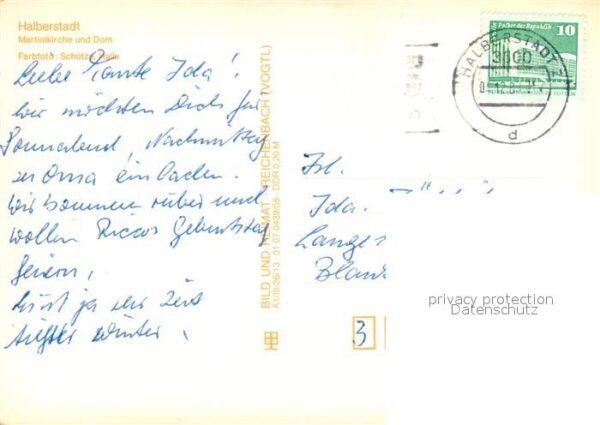 Halberstadt
Martinikirche und Dom
Farbfoto: Schütze, Halle
Liebe Tante Ida!
wir möchten Dich für
Sonnabend, Nachmittag
zu Oma einladen.
Wir kommen rüber und
wollen Riccos Geburtstag
feiern,
ist ja zur Zeit
tiefster Winter,
BILD UND HEIMAT REICHENBACH (VOGTL)
A1/III/26/13 01 07 0439/05 DDR 0,20 M
Palast der Republik
10
HALBERSTADT 2
3600
d
Frl.
Ida
Lange
Blank
3
privacy protection
Datenschutz